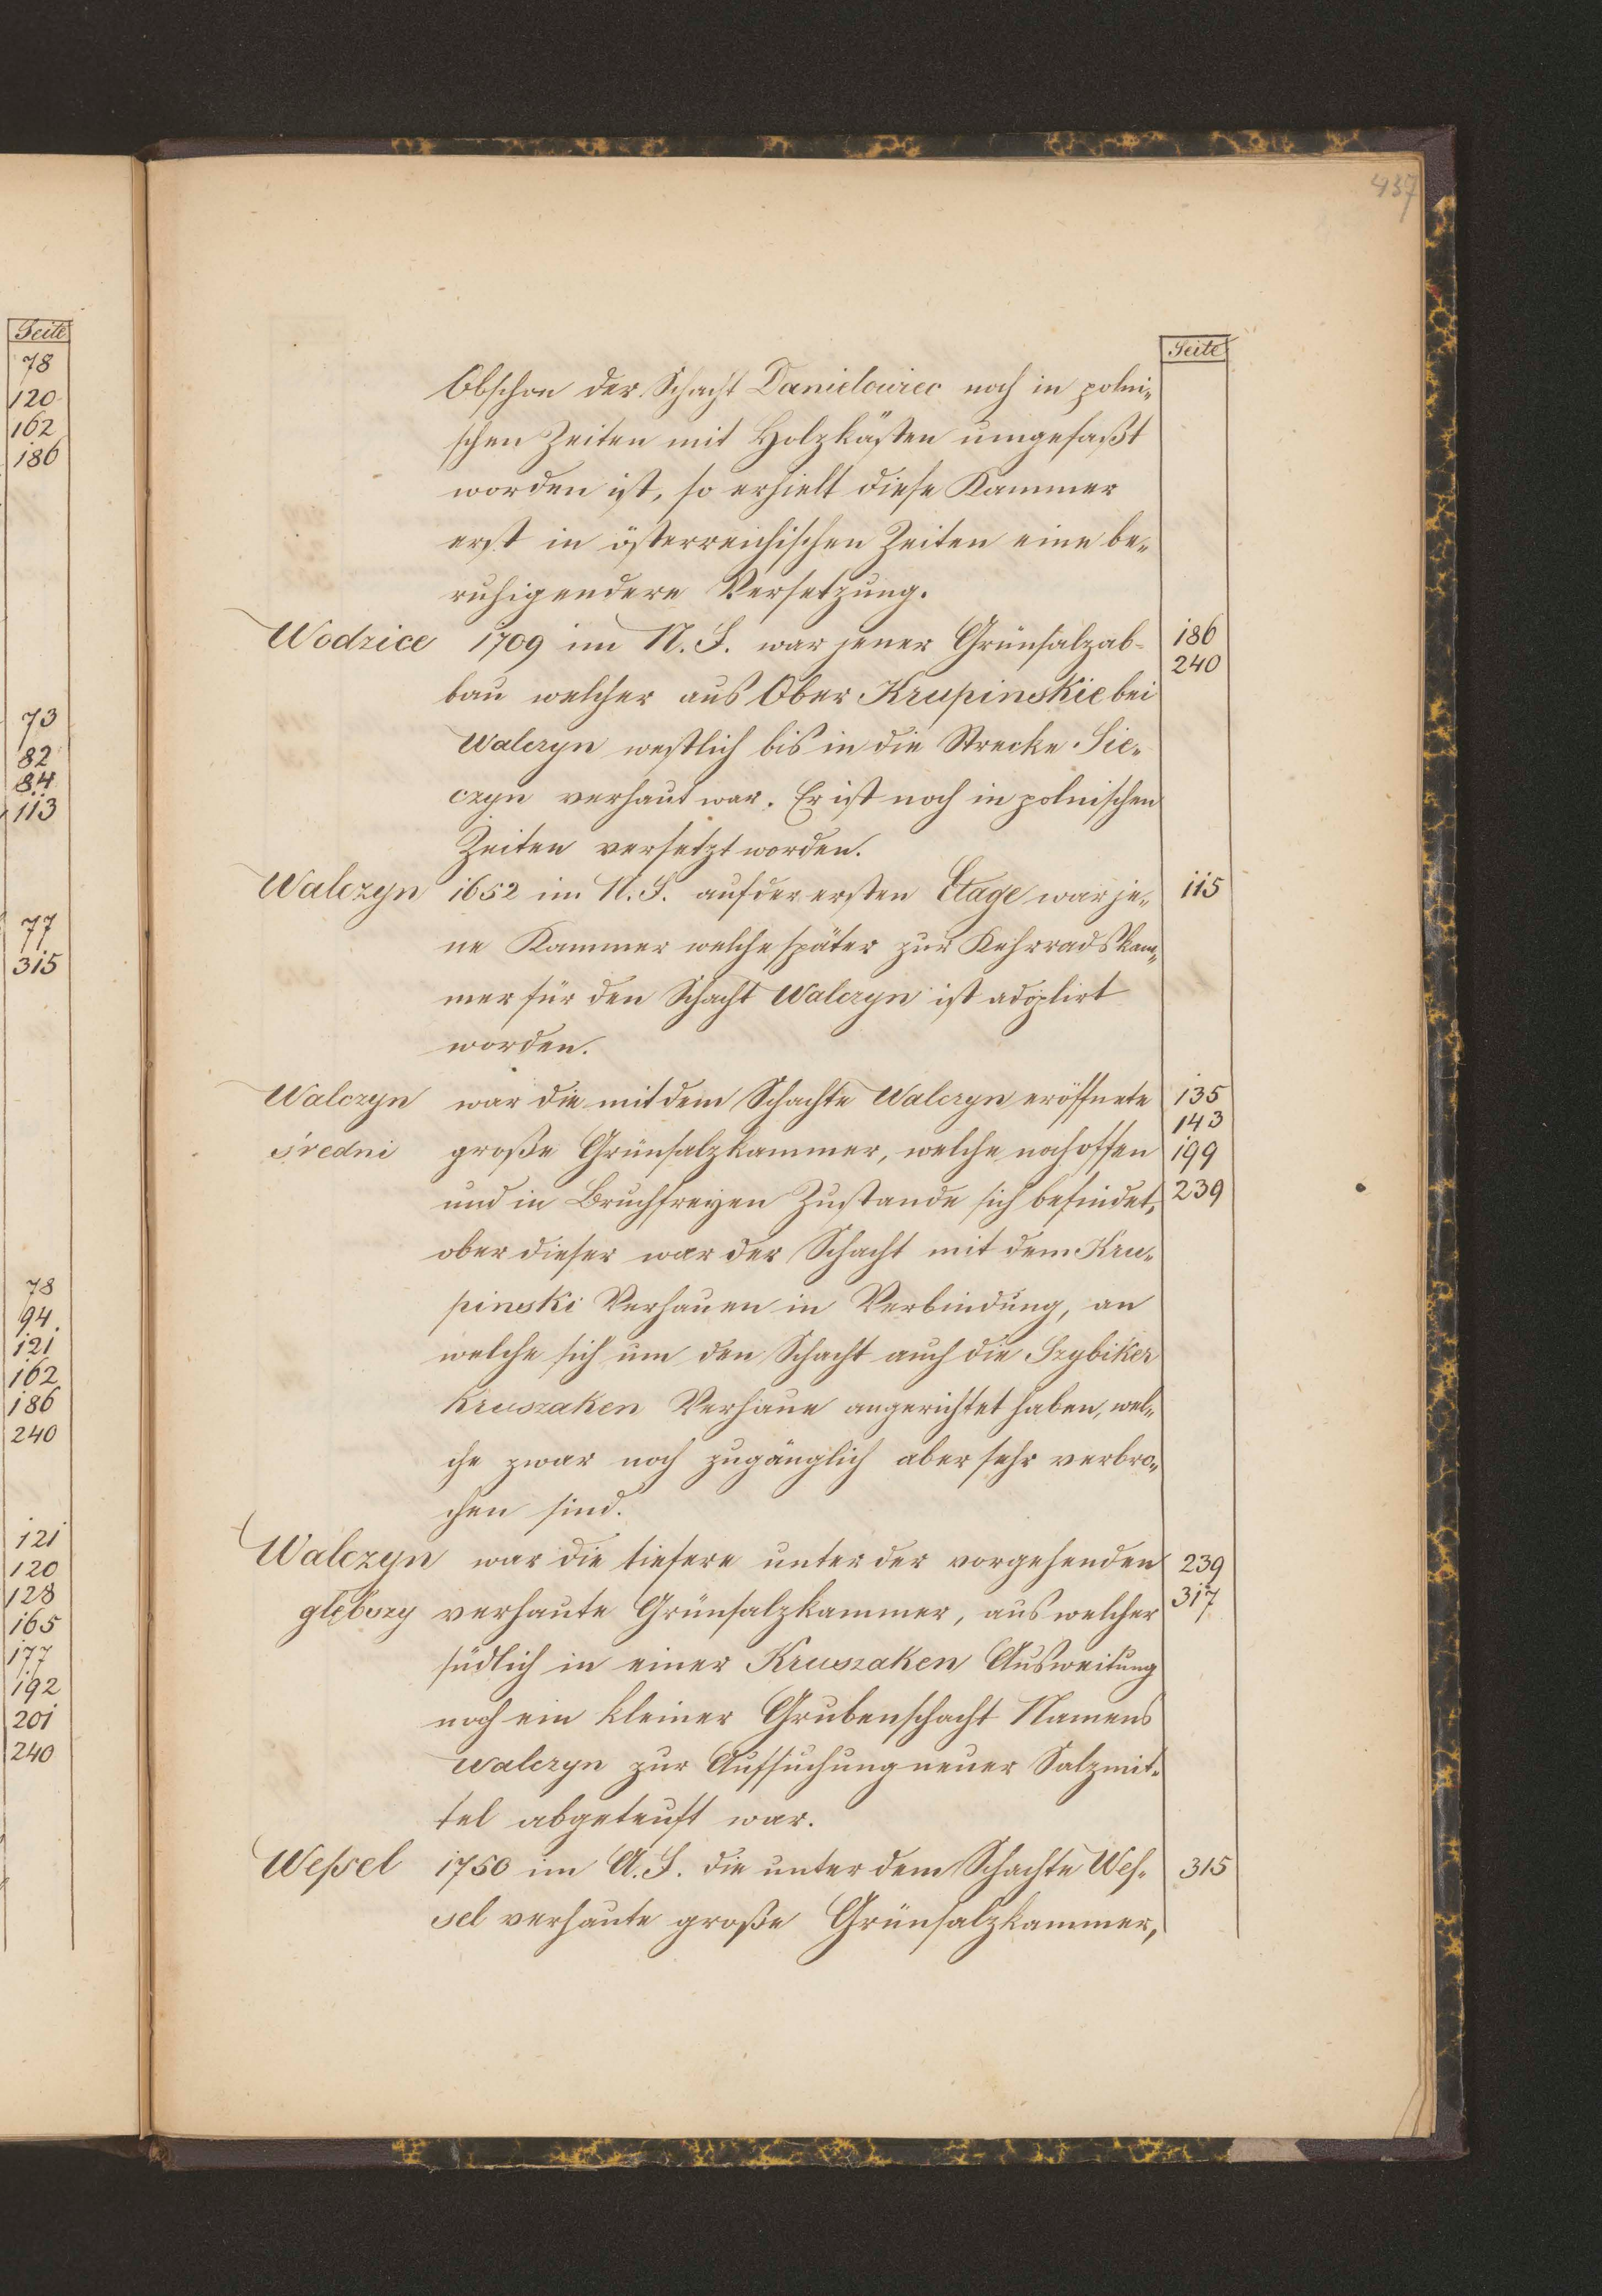 437
Seite
78
120
162
186
73
82
84
113
77
315
78
94
121
162
186
240
121
120
128
165
177
192
201
240
Seite
Obschon der Schacht Danielowiec noch in polni-
schen Zeiten mit Holzkästen umgefaßt
worden ist, so erhielt diese Kammer
erst in österreichischen Zeiten eine be-
ruhigendere Versetzung.
Wodzice 1709 im N. F. war jener Grünsalzab- 186
240
bau welcher aus Ober Krupinskie bei
Walczyn westlich bis in die Strecke Sie-
czyn verhaut war. Er ist noch in polnischen
Zeiten versetzt worden.
Walczyn 1652 im N. F. auf der ersten Etage war je- 115
ne Kammer welche später zur Kehrradskam-
mer für den Schacht Walczyn ist adoptirt
worden.
Walczyn war die mit dem Schachte Walczyn eröffnete 135
143
sredni große Grünsalzkammer, welche noch offen 199
und in Bruchfreyen Zustande sich befindet, 239
ober dieser war der Schacht mit dem Kru-
pinski Verhauen in Verbindung, an
welche sich um den Schacht auch die Szybiker
Kruszaken Verhaue angerichtet haben, wel-
che zwar noch zugänglich aber sehr verbro-
chen sind.
Walczyn war die tiefere unter der vorgehenden 239
głębszy verhaute Grünsalzkammer, aus welcher 317
südlich in einer Kruszaken Ausweitung
noch ein kleiner Grubenschacht Namens
Walczyn zur Aufsuchung neuer Salzmit-
tel abgeteuft war.
Weßel 1750 im A. F. die unter dem Schachte Wes- 315
sel verhaute große Grünsalzkammer,